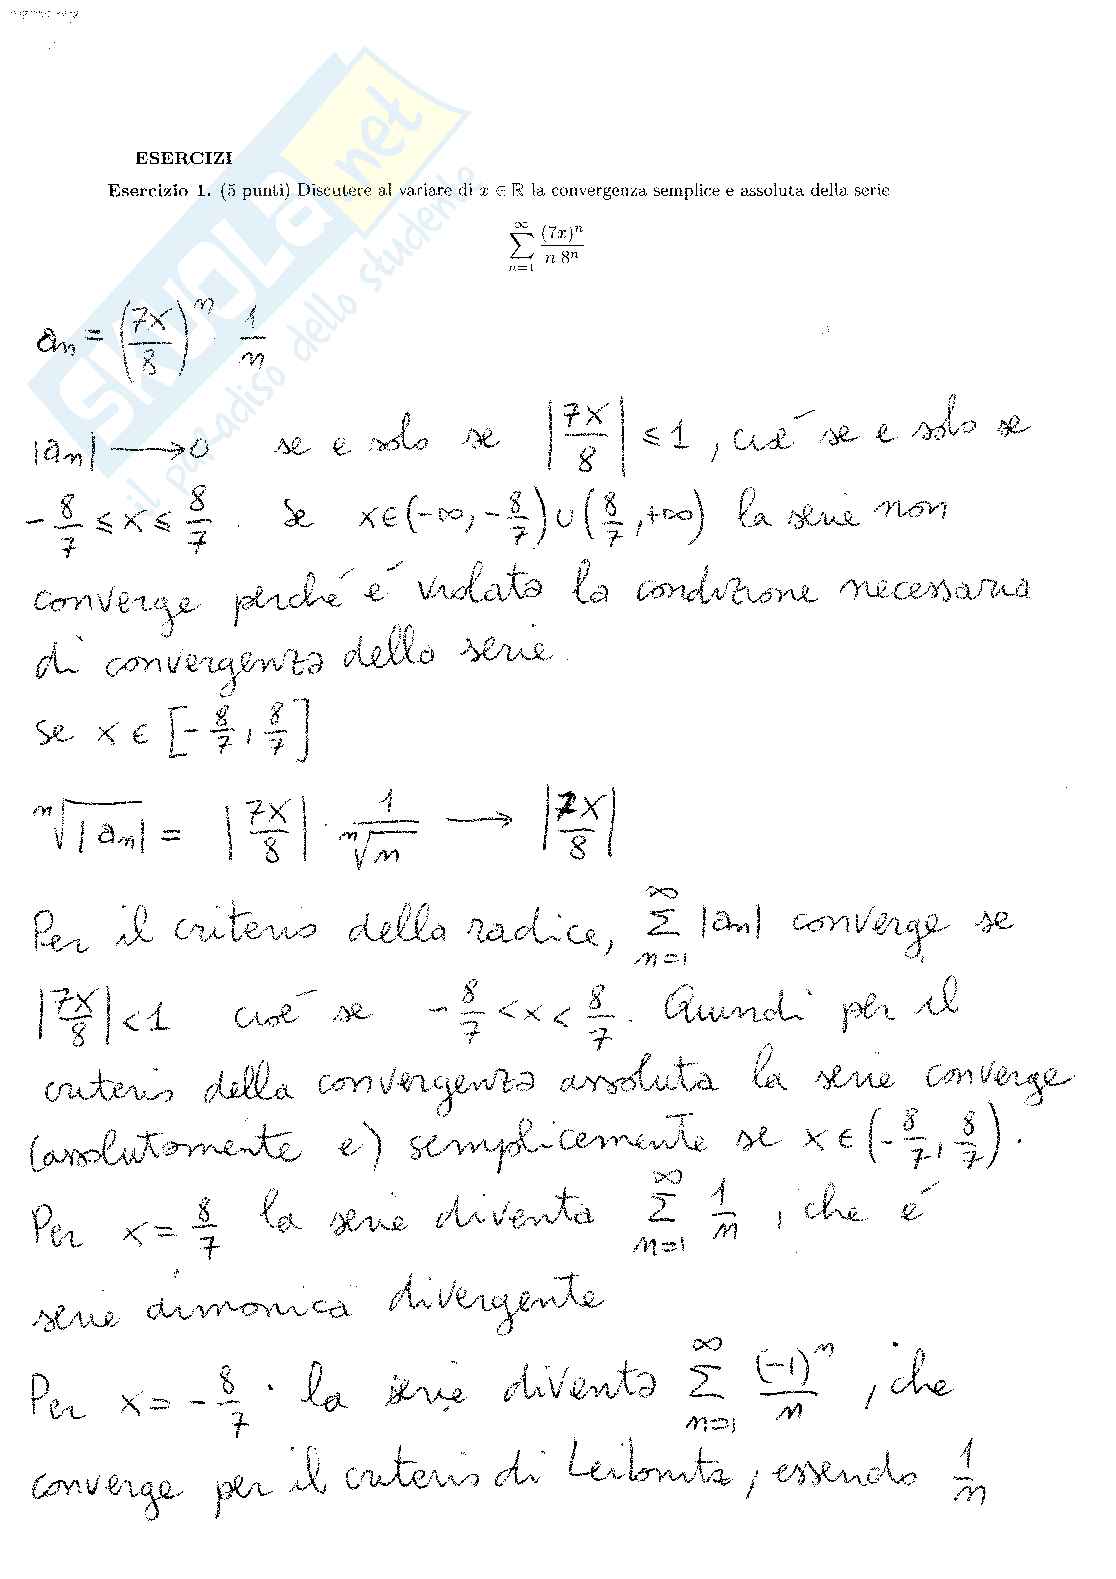 SKUOLA.net
il paradiso dello studente
ESERCIZI
Esercizio 1. (5 punti) Discutere al variare di x ∈ ℝ la convergenza semplice e assoluta della serie
∑_{n=1}^{∞} (7x)^n / (n 8^n)
a_n = (7x/8)^n · 1/n
|a_n| ⟶ 0 se e solo se |7x/8| ≤ 1, cioè se e solo se
-8/7 ≤ x ≤ 8/7. Se x ∈ (-∞, -8/7) ∪ (8/7, +∞) la serie non
converge perché è violata la condizione necessaria
di convergenza della serie.
Se x ∈ [-8/7, 8/7]
ⁿ√|a_n| = |7x/8| · 1/ⁿ√n ⟶ |7x/8|
Per il criterio della radice, ∑_{n=1}^{∞} |a_n| converge se
|7x/8| < 1 cioè se -8/7 < x < 8/7. Quindi per il
criterio della convergenza assoluta la serie converge
(assolutamente e) semplicemente se x ∈ (-8/7, 8/7).
Per x = 8/7 la serie diventa ∑_{n=1}^{∞} 1/n, che è
serie armonica divergente
Per x = -8/7 · la serie diventa ∑_{n=1}^{∞} (-1)^n/n, che
converge per il criterio di Leibnitz, essendo 1/n